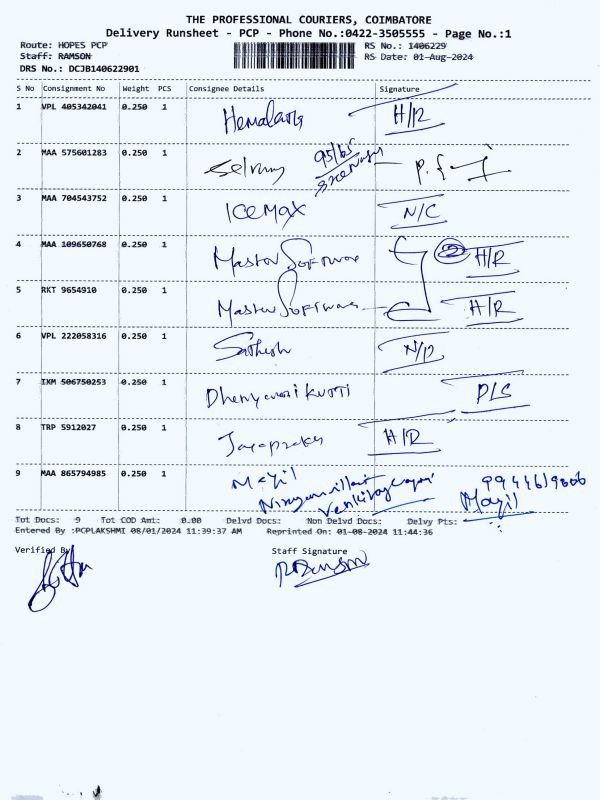 THE PROFESSIONAL COURIERS, COIMBATORE
Delivery Runsheet - PCP - Phone No.:0422-3505555 - Page No.:1
Route: HOPES PCP RS No.: 1406229
Staff: RAMSON RS Date: 01-Aug-2024
DRS No.: DCJB140622901
S No Consignment No Weight PCS Consignee Details Signature
1 VPL 405342041 0.250 1 Hemalatha H/R
2 MAA 575601283 0.250 1 Selvam 95/65
3 MAA 704543752 0.250 1 ICEMAX N/C
4 MAA 109650768 0.250 1 Master Software 2 H/R
5 RKT 9654910 0.250 1 Master Software H/R
6 VPL 222058316 0.250 1 Sathesh
7 IXM 506750253 0.250 1 Kutti P/S
8 TRP 5912027 0.250 1 Jayaprakash H/R
9 MAA 865794985 0.250 1 Mayil Mayil
Tot Docs: 9 Tot COD Amt: 0.00 Delvd Docs: Non Delvd Docs: Delvy Pts:
Entered By :PCPLAKSHMI 08/01/2024 11:39:37 AM Reprinted On: 01-08-2024 11:44:36
Verified By Staff Signature
Ramson